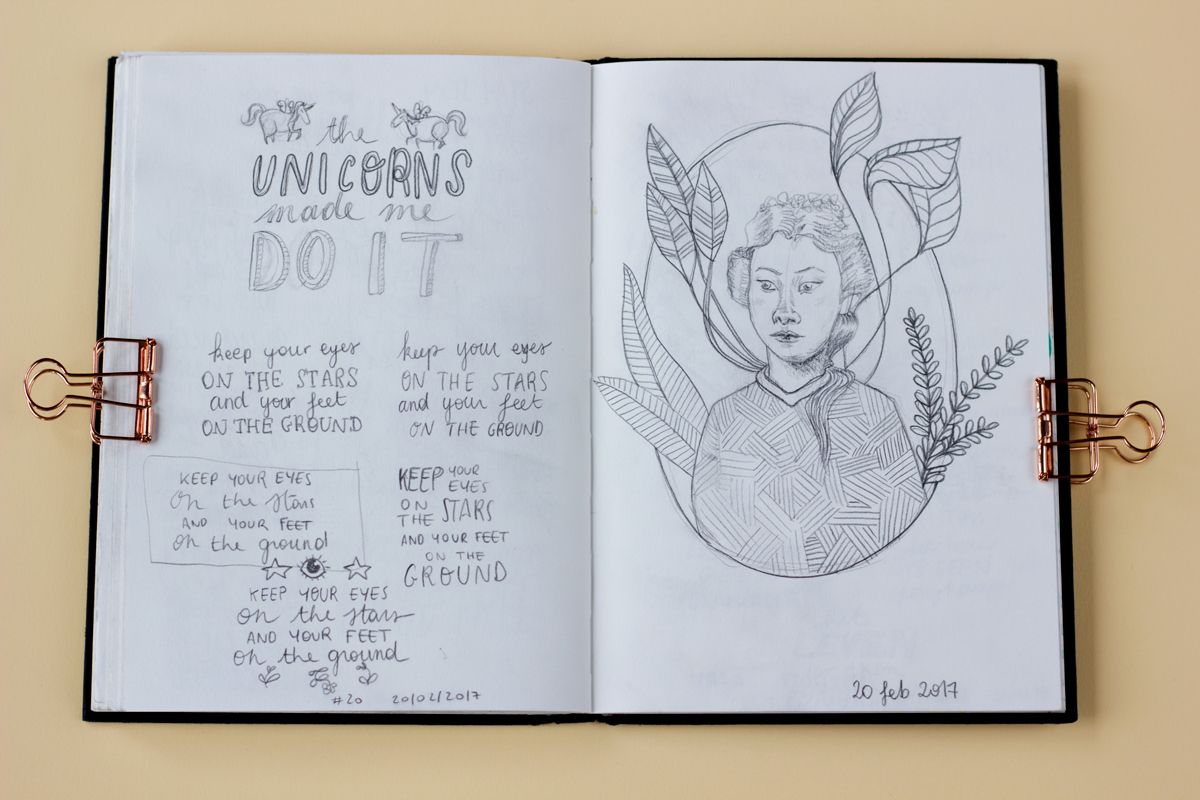 the
UNICORNS
made me
DO IT
keep your eyes
ON THE STARS
and your feet
ON THE GROUND
keep your eyes
ON THE STARS
and your feet
ON THE GROUND
KEEP YOUR EYES
On the stars
AND YOUR FEET
On the ground
KEEP YOUR
EYES
ON
THE STARS
AND YOUR FEET
ON THE
GROUND
KEEP YOUR EYES
on the stars
AND YOUR FEET
on the ground
#20 20/02/2017
20 feb 2017